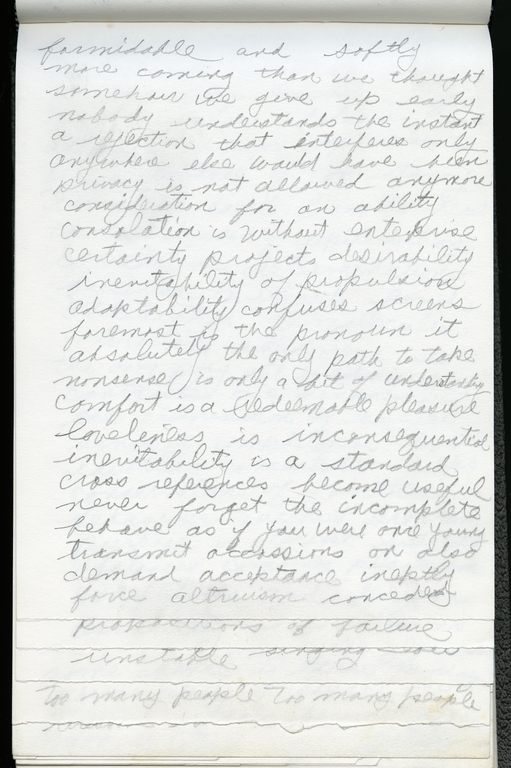 formidable and softly
more coming than we thought
somehow we give up early
nobody understands the instant
a rejection that interferes only
anywhere else would have been
privacy is not allowed anymore
consideration for an ability
consolation is without enterprise
certainty projects desirability
inevitability of propulsion
adaptability confuses screens
foremost is the pronoun it
absolutely the only path to take
nonsense is only a bit of understanding
comfort is a redeemable pleasure
loveliness is inconsequential
inevitability is a standard
cross references become useful
never forget the incomplete
behave as if you were once young
transmit occassions on also
demand acceptance ineptly
force altruism
propositions of failure
unstable singing
too many people too many people